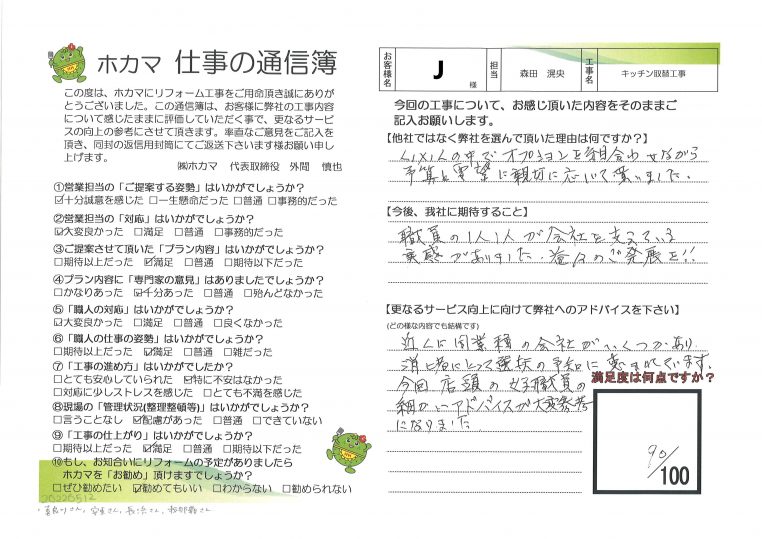 ホカマ 仕事の通信簿
この度は、ホカマにリフォーム工事をご用命頂き誠にありが
とうございました。この通信簿は、お客様に弊社の工事内容
について感じたままに評価していただく事で、更なるサービ
スの向上の参考にさせて頂きます。率直なご意見をご記入を
頂き、同封の返信用封筒にてご返送下さいます様お願い申し
上げます。
㈱ホカマ 代表取締役 外間 慎也
①営業担当の「ご提案する姿勢」はいかがでしょうか?
☑十分誠意を感じた □一生懸命だった □普通 □事務的だった
②営業担当の「対応」はいかがでしょうか?
☑大変良かった □満足 □普通 □事務的だった
③ご提案させて頂いた「プラン内容」はいかがでしょうか?
□期待以上だった ☑満足 □普通 □期待以下だった
④プラン内容に「専門家の意見」はありましたでしょうか?
□かなりあった ☑十分あった □普通 □殆んどなかった
⑤「職人の対応」はいかがでしょうか?
☑大変良かった □満足 □普通 □良くなかった
⑥「職人の仕事の姿勢」はいかがでしょうか?
□期待以上だった ☑満足 □普通 □雑だった
⑦「工事の進め方」はいかがでしたか?
□とても安心していられた ☑特に不安はなかった
□対応に少しストレスを感じた □とても不満を感じた
⑧現場の「管理状況(整理整頓等)」はいかがでしょうか?
□言うことなし ☑配慮があった □普通 □できていない
⑨「工事の仕上がり」はいかがでしょうか?
□期待以上だった ☑満足 □普通 □期待以下だった
⑩もし、お知合いにリフォームの予定がありましたら
ホカマを「お勧め」頂けますでしょうか?
□ぜひ勧めたい ☑勧めてもいい □わからない □勧められない
20220512
お客様名 J 様 担当 森田 滉央 工事名 キッチン取替工事
今回の工事について、お感じ頂いた内容をそのままご
記入お願いします。
【他社ではなく弊社を選んで頂いた理由は何ですか?】
の中でオプションを組合わせながら
予算と要望に親切に応じて貰いました。
【今後、我社に期待すること】
職員の1人1人が会社を支えている
実感がありました。益々のご発展を!!
【更なるサービス向上に向けて弊社へのアドバイスを下さい】
(どの様な内容でも結構です)
近くに同業種の会社がいくつかあり
消費者にとって選択の予知に恵まれています。
今回店頭の女子職員の
細かいアドバイスが大変参考
になりました
満足度は何点ですか?
90/100